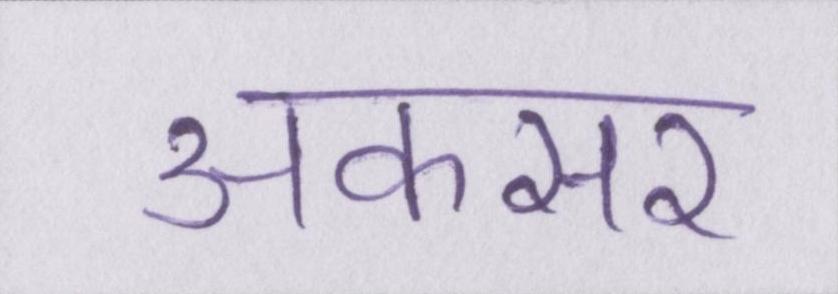 अकसर